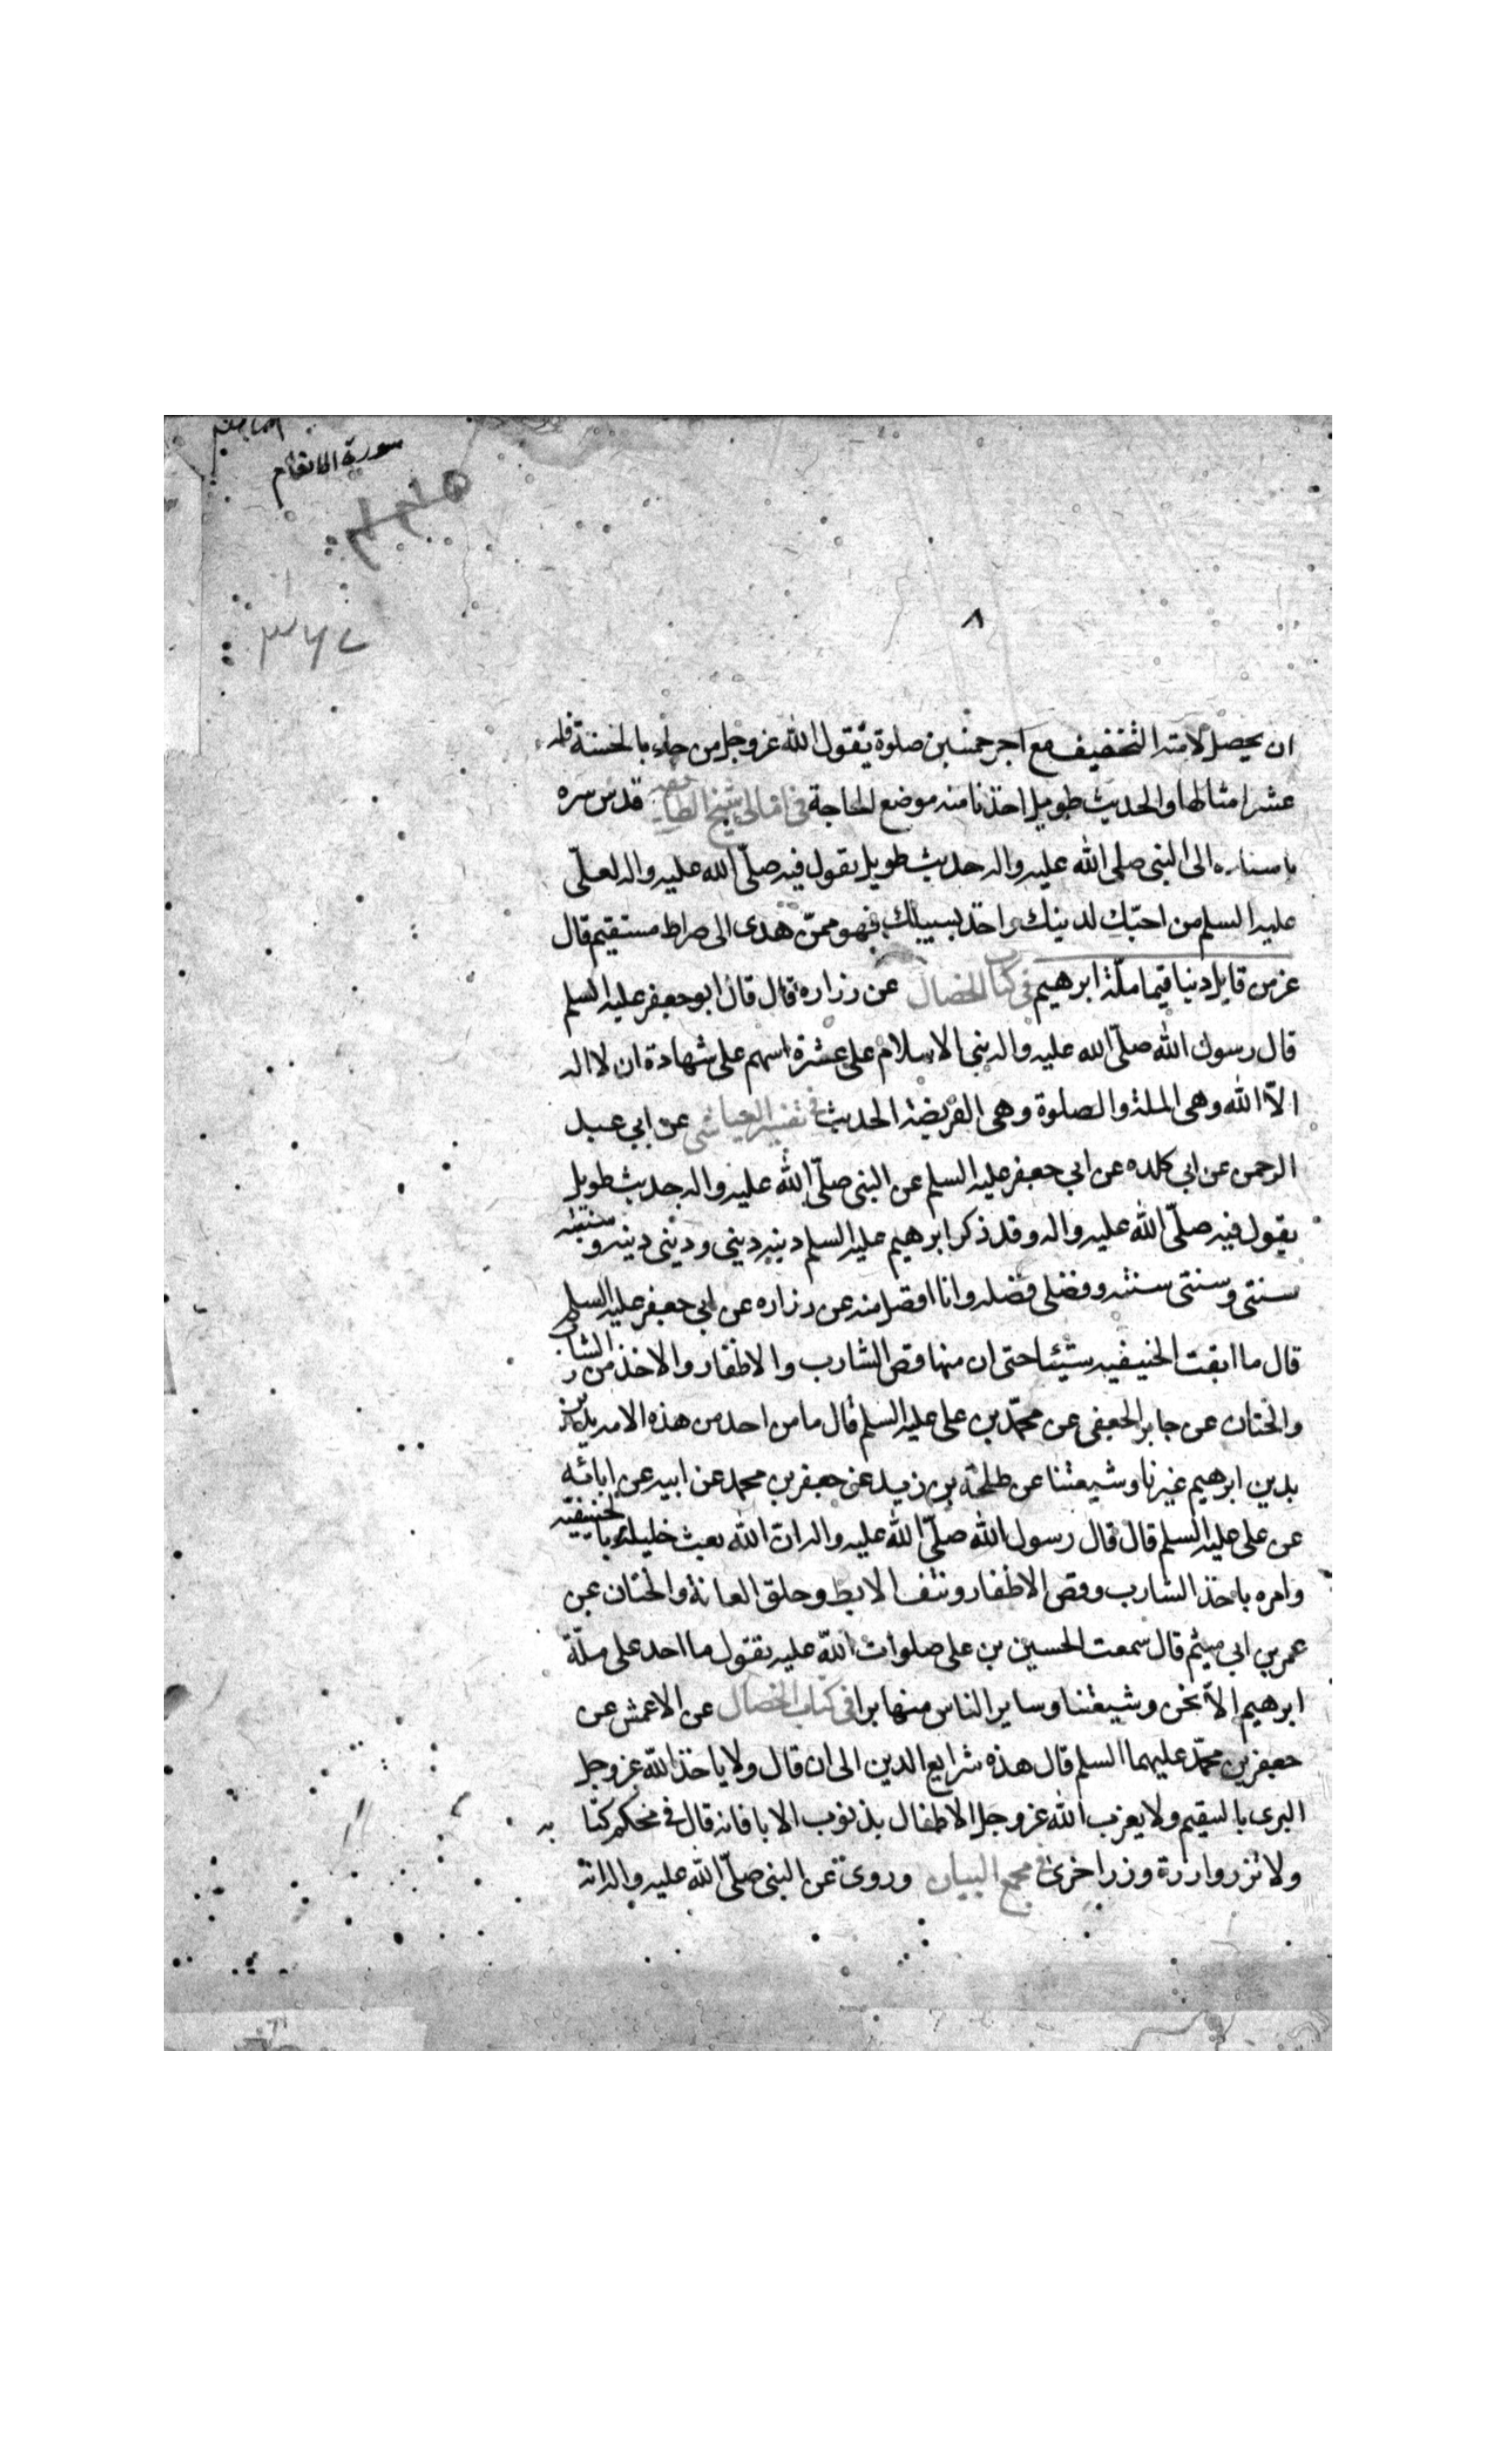 سورة الانعام
٣٤٧
٨
ان يحصل لامته التخفيف مع اجر خمسين صلوة يقول الله عز وجل من جاء بالحسنة فله
عشر امثالها والحديث طويل اخذنا منه موضع الحاجة في امالي شيخ الطايفه قدس سره
باسناده الى النبي صلى الله عليه واله حديث طويل يقول فيه صلّى الله عليه واله لعلّى
عليه السلم من احبّك لدينك واخذ بسبيلك فهو ممنّ هدى الى صراط مستقيم قال
عز من قايل دينا قيما ملّة ابرهيم في كتاب الخصال عن زراره قال قال ابو جعفر عليه السلم
قال رسول الله صلّى الله عليه واله بنى الاسلام على عشرة اسهم على شهادة ان لا اله
الاّ الله وهى الملة والصلوة وهى الفريضة الحديث في تفسير العياشى عن ابي عبد
الرحمن عن ابي كلده عن ابي جعفر عليه السلم عن النبى صلّى الله عليه واله حديث طويل
يقول فيه صلّى الله عليه واله وقد ذكر ابرهيم عليه السلم دينه دينى ودينى دينه وسنته
سنتى وسنتى سنته وفضلى فضله وانا افضل منه عن زراره عن ابي جعفر عليه السلم
قال ما ابقت الحنيفيه شيئا حتى ان منها قص الشارب والاظفار والاخذ من الشارب
والختان عن جابر الجعفى عن محمّد بن على عليه السلم قال ما من احد من هذه الامه يدين
بدين ابرهيم غيرنا وشيعتنا عن طلحة بن زيد عن جعفر بن محمد عن ابيه عن ابائه
عن على عليه السلم قال قال رسول الله صلّى الله عليه واله انّ الله بعث خليله بالحنيفيّه
وامره باخذ الشارب وقص الاظفار ونتف الابط وحلق العانة والختان عن
عمر بن ابي ميثم قال سمعت الحسين بن على صلوات الله عليه يقول ما احد على ملّة
ابرهيم الاّ نحن وشيعتنا وساير الناس منها برا في كتاب الخصال عن الاعمش عن
جعفر بن محمّد عليهما السلم قال هذه شرايع الدين الى ان قال ولا ياخذ الله عز وجل
البرى بالسقيم ولا يعزب الله عز وجل الاطفال بذنوب الابا فانه قال في محكم كتابه
ولا تزر وازرة وزر اخرى في مجمع البيان وروى عن النبى صلّى الله عليه واله انّه